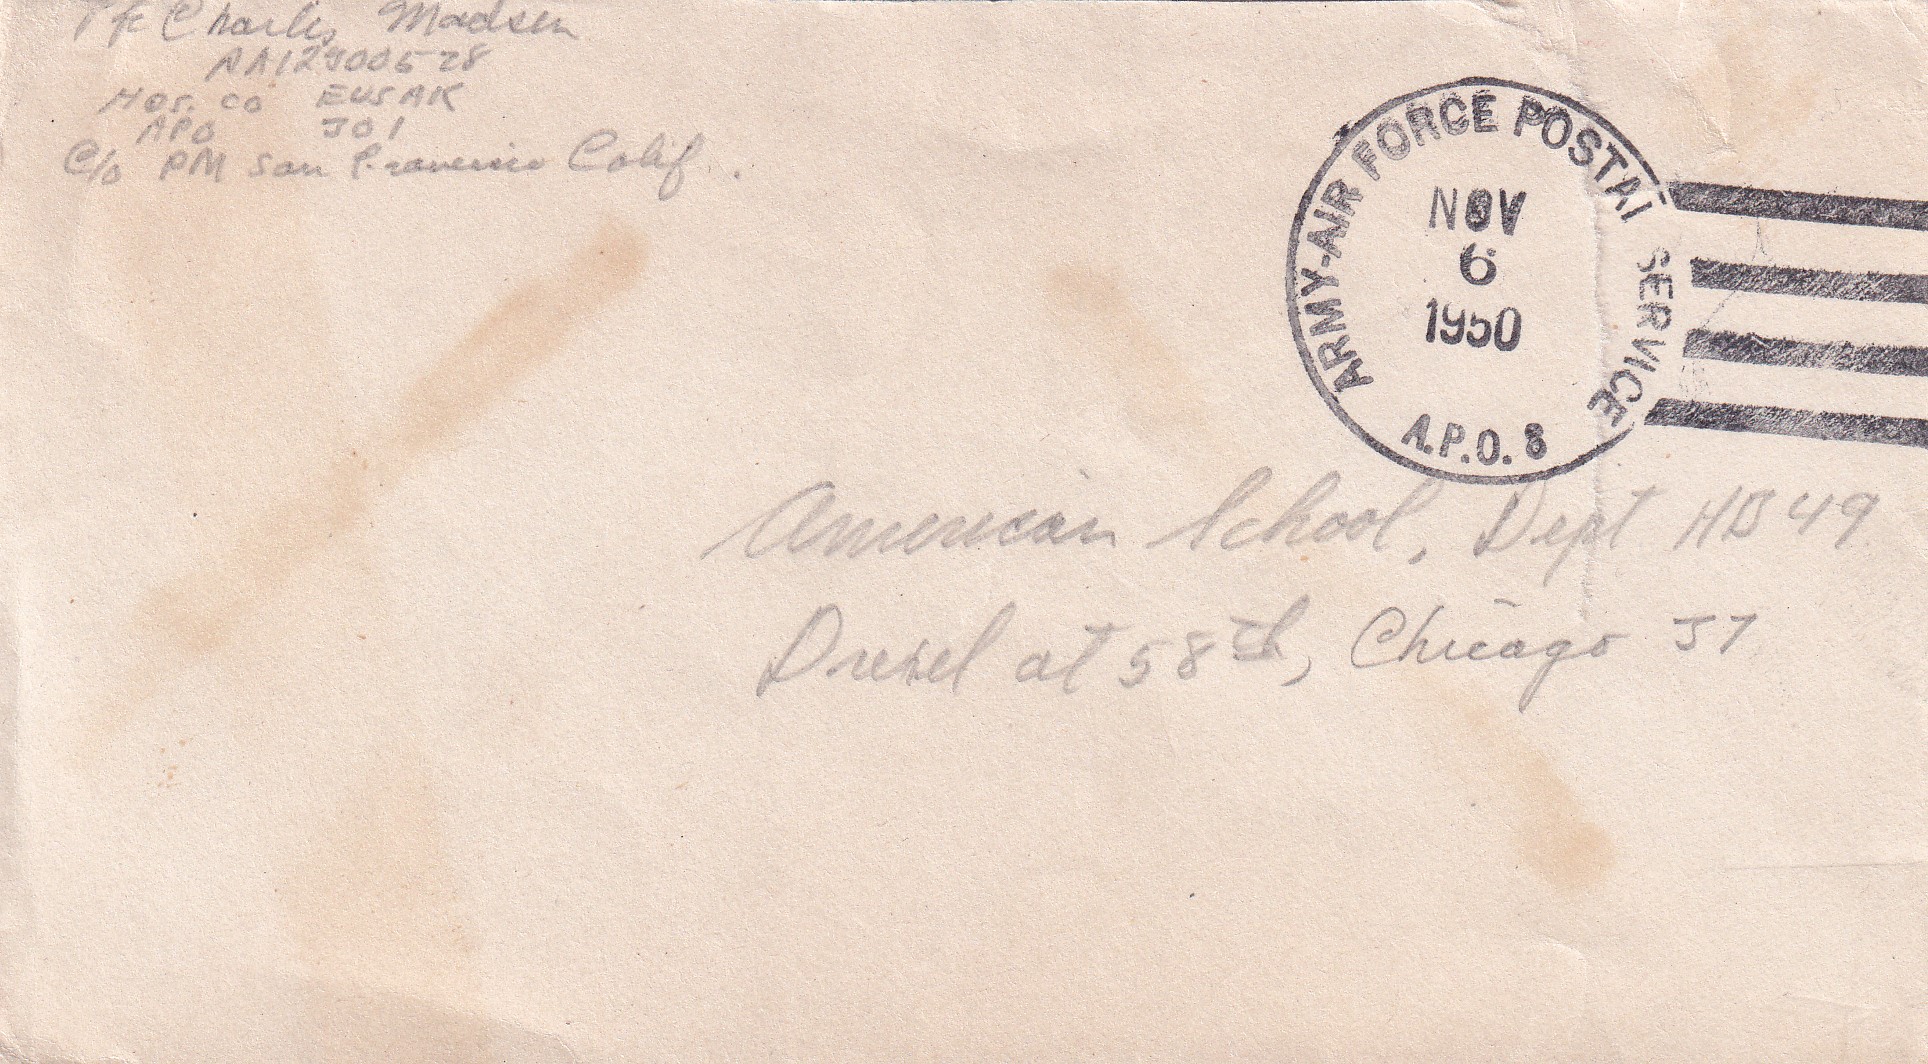 Pfc Charles Madsen
Hos. Co EUSAK
APO 301
C/o PM San Francisco Calif.
ARMY-AIR FORCE POSTAL SERVICE
NOV
6
1950
A.P.O. 8
American School, Dept HB49
Drexel at 58th, Chicago 37